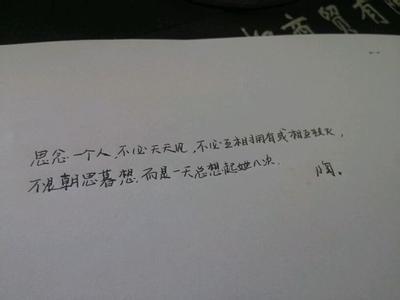 商貿有
思念一个人,不必天天见,不必互相拥有或相互毁灭,
不是朝思暮想,而是一天总想起她几次.